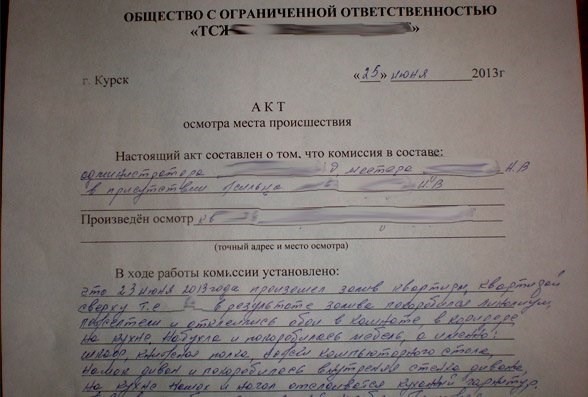 ОБЩЕСТВО С ОГРАНИЧЕННОЙ ОТВЕТСТВЕННОСТЬЮ
«ТСЖ »
г. Курск «25» июня 2013г
А К Т
осмотра места происшествия
Настоящий акт составлен о том, что комиссия в составе:
администратора мастера Н.В
в присутствии жильца И.В
Произведён осмотр
(точный адрес и место осмотра)
В ходе работы комиссии установлено:
Что 23 июня 2013 года произошел залив квартиры, квартирой
сверху т.е в результате залива покоробился линолеум,
и отклеились обои в комнате, в коридоре
на кухне. Набухла и покоробилась мебель, а именно:
шкаф, книжная полка, компьютерного стола,
намок диван и покоробилась внутренняя стенка дивана,
на кухне намок и начал отслаиваться кухонный гарнитур.